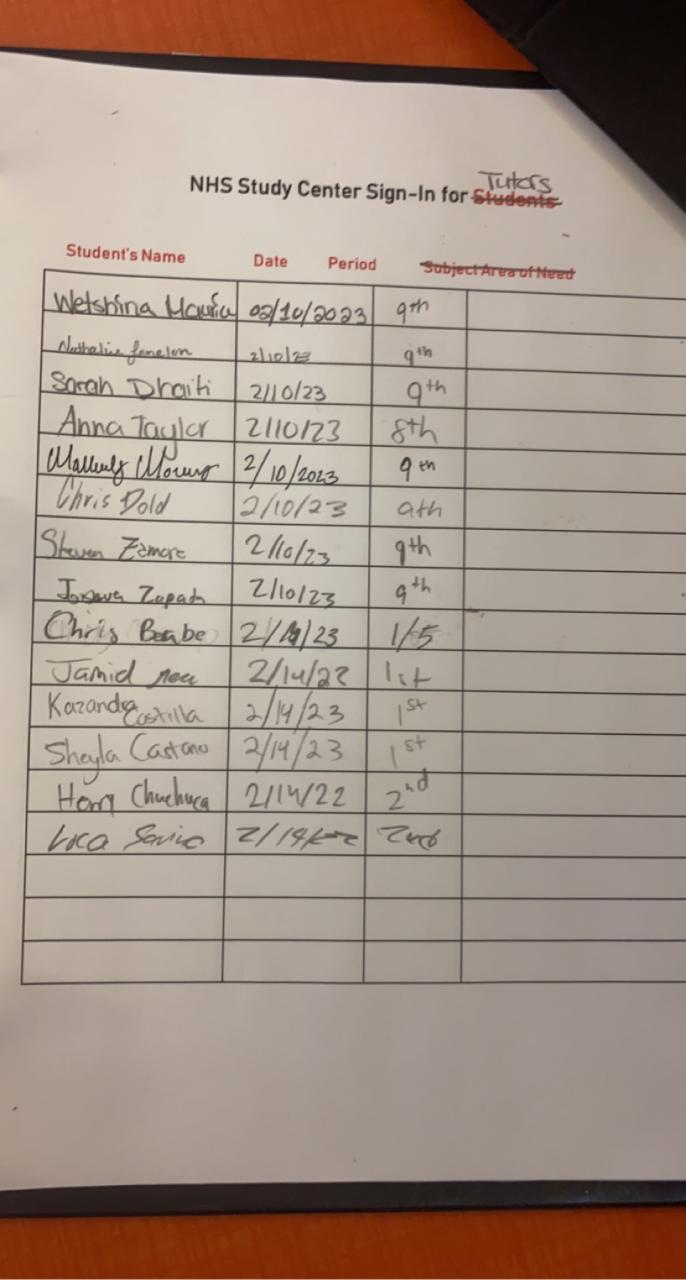 Tutors
NHS Study Center Sign-In for Students
Student's Name Date Period Subject Area of Need
Wetshina 02/10/2023 9th
Nathalie fenelon 2/10/23 9th
Sarah Dhaiti 2/10/23 9th
Anna Taylor 2/10/23 8th
2/10/2023 9th
Chris Dold 2/10/23 9th
Steven Zamora 2/10/23 9th
Zapata 2/10/23 9th
Chris 1/5
Jamid 2/14/22 1st
Kazandra Costilla 2/14/23 1st
Sheyla Castano 2/14/23 1st
Henry Chuchuca 2/14/22 2nd
Luca 2nd